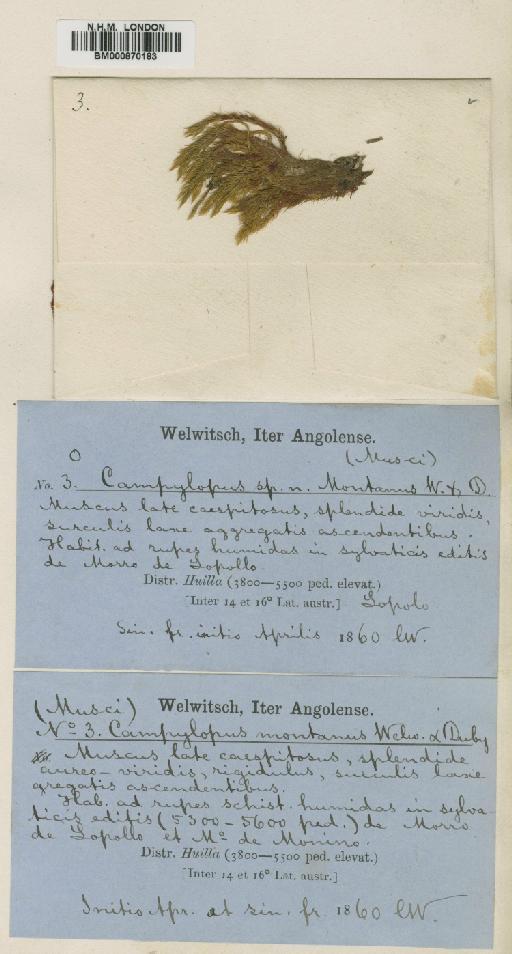 N.H.M. LONDON
BM000870183
3.
Welwitsch, Iter Angolense.
O (Musci)
No. 3. Campylopus sp. n. Montanus W. & D.
Muscus late caespitosus, splendide viridis,
surculis laxe aggregatis ascendentibus.
Habit. ad rupes humidas in sylvaticis editis
de Morro de Lopollo.
Distr. Huilla (3800—5500 ped. elevat.)
[Inter 14 et 16° Lat. austr.] Lopolo
Sin. fr. initio Aprilis 1860 W.
(Musci) Welwitsch, Iter Angolense.
No. 3. Campylopus montanus Welw. & Duby
Muscus late caespitosus, splendide
aureo-viridis, rigidulus, surculis laxe
gregatis ascendentibus.
Hab. ad rupes schist. humidas in sylva-
ticis editis (5300-5600 ped.) de Morro
de Lopollo et Mo. de Monino.
Distr. Huilla (3800—5500 ped. elevat.)
[Inter 14 et 16° Lat. austr.]
Initio Apr. at sin. fr. 1860 W.